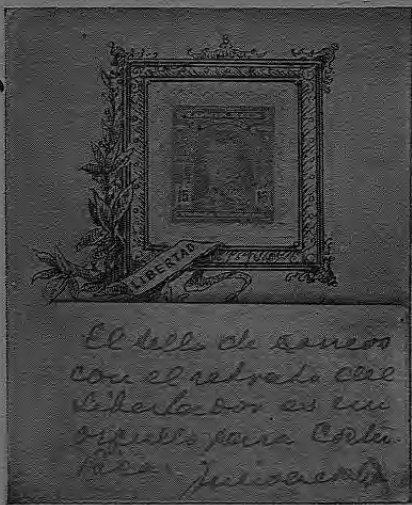 15 15
LIBERTAD
El sello de correos
con el retrato del
Libertador es un
orgullo para Costa
Rica.